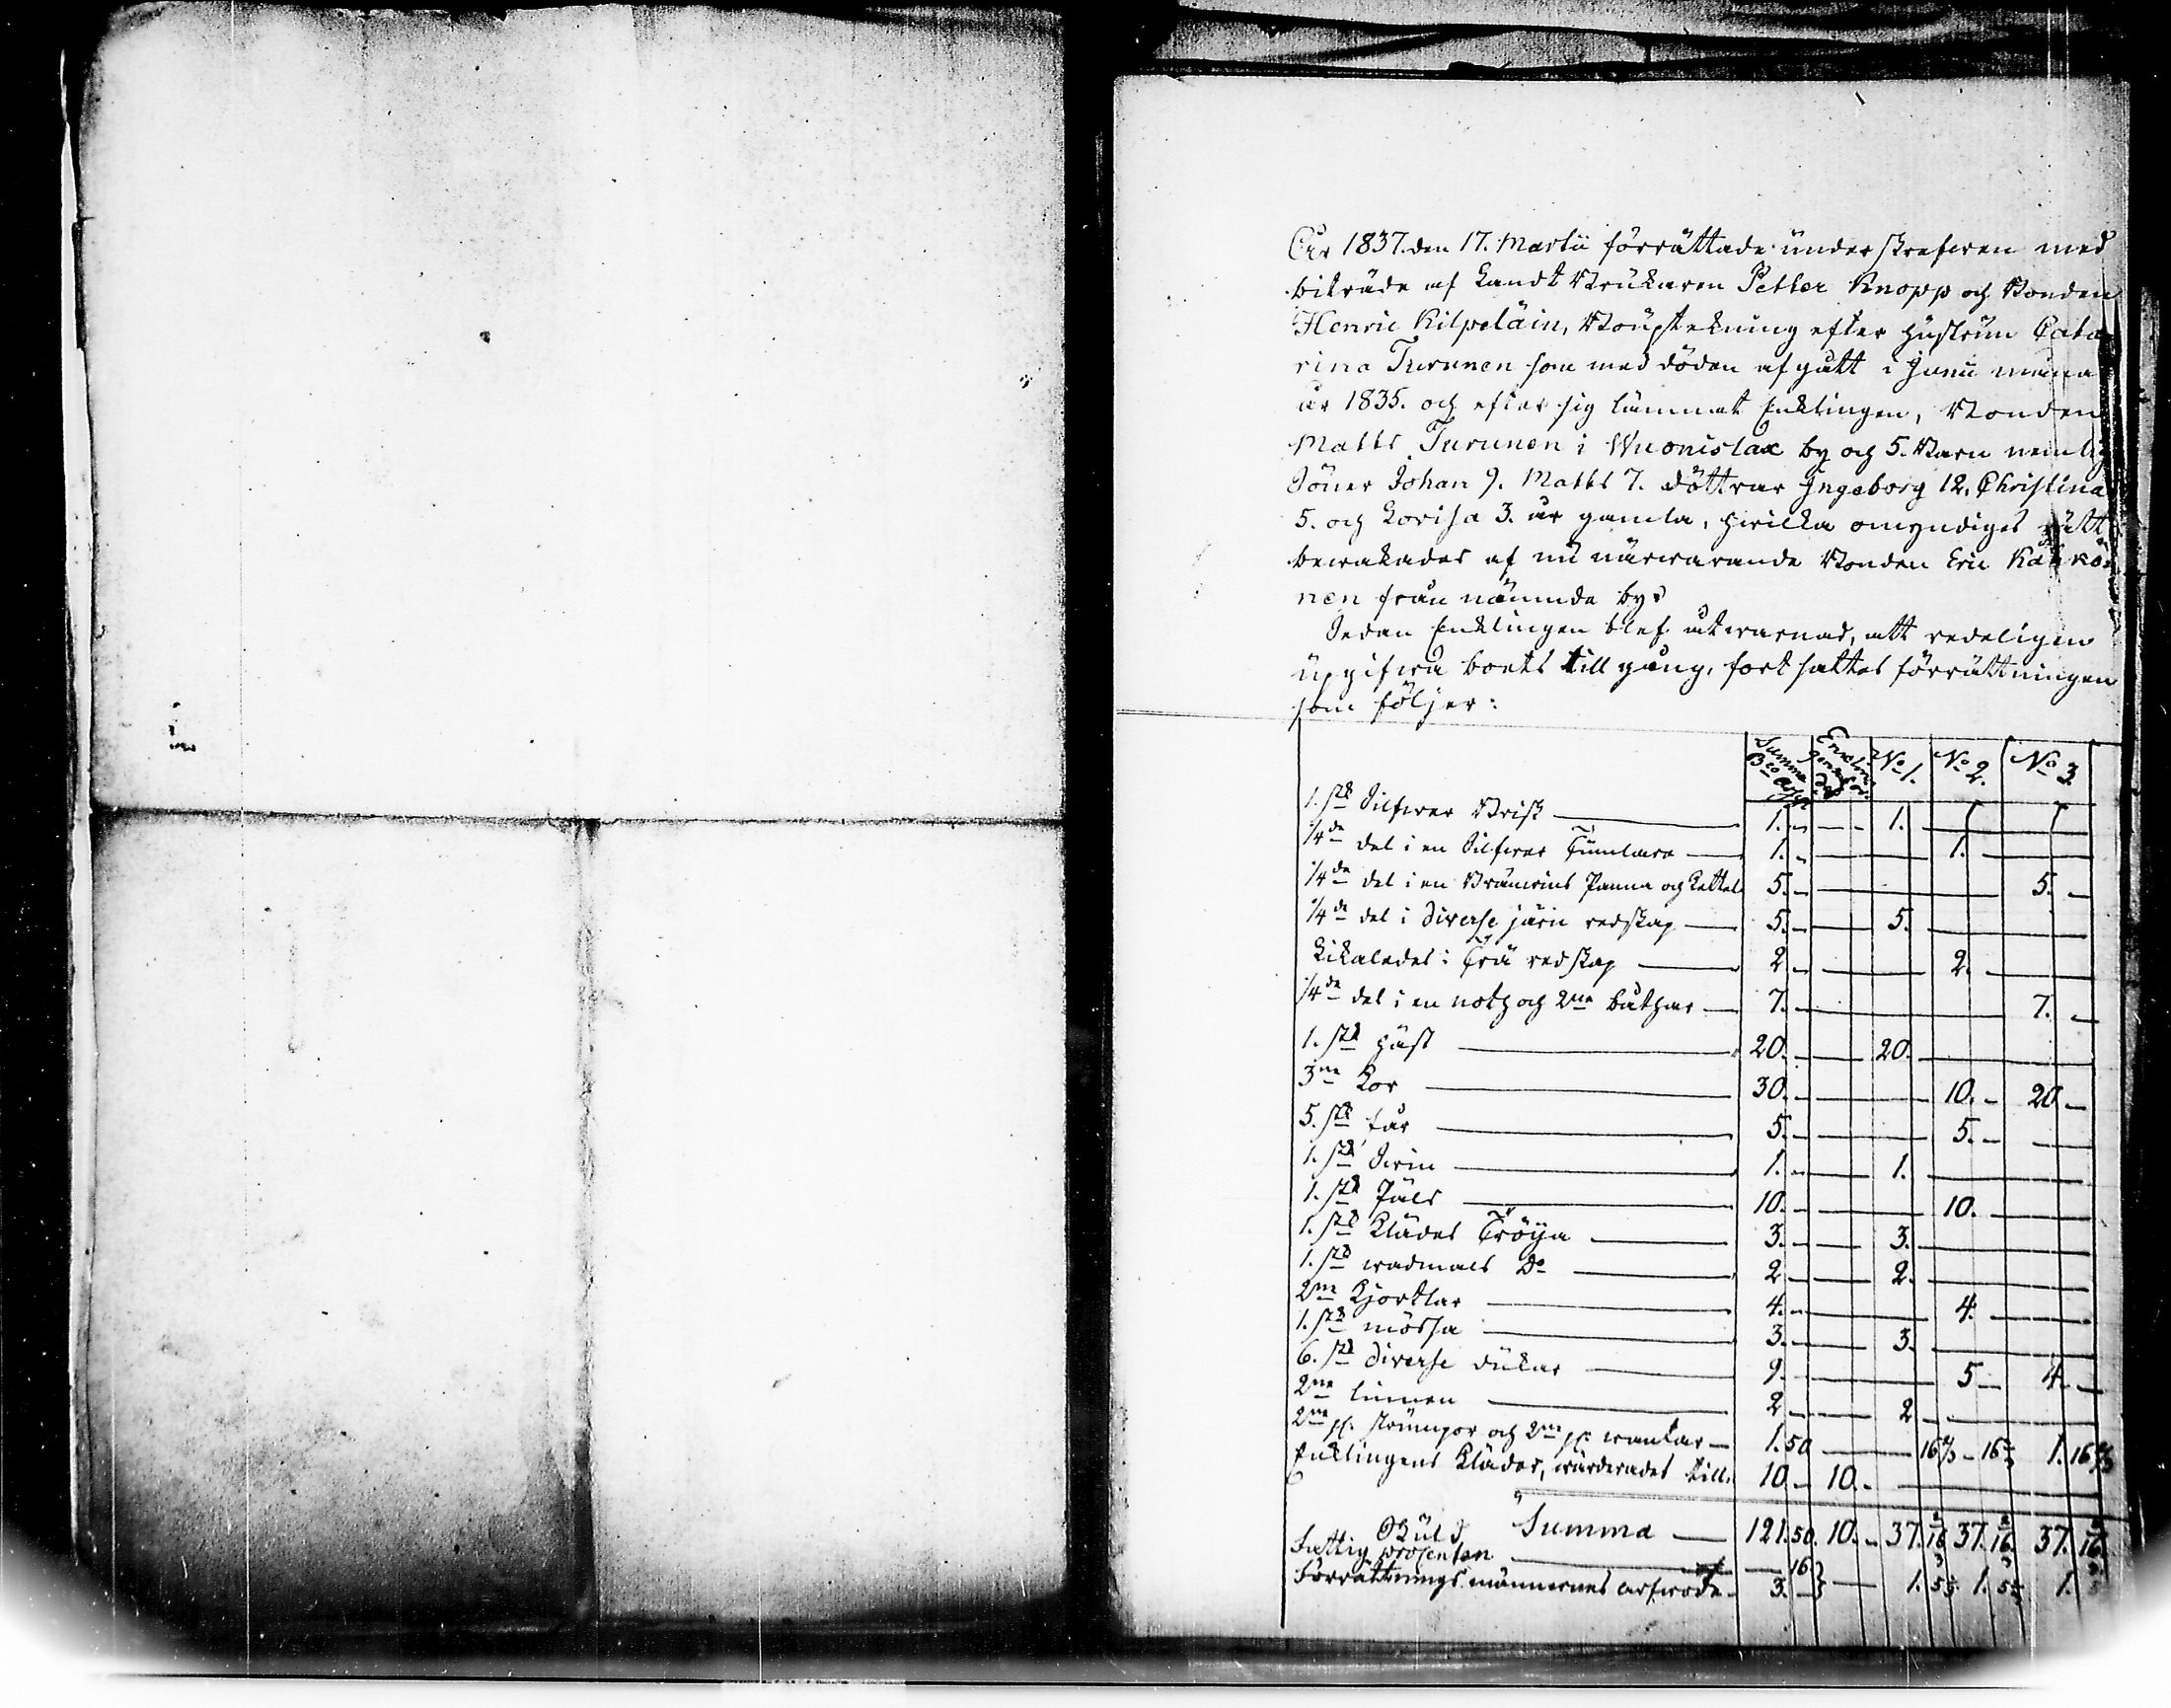 År 1837. den 17. Martii förrättade underskrefwen med
biträde af Landt Brukaren Petter Knopp och Bonden
Henric Kilpeläin, Bouptekning efter hustrun Catha
rina Turunen som med döden afgått i Junii måna
år 1835. och efter sig lämnat Enklingen, Bonden
Matts Turunen i Wuonislax by och 5. Barn nemlig
Söner Johan 9. Matts 7. döttrar Ingeborg 12. Christina
5. och Lovisa 3. år gamla, hwilka omyndiges rätt
bewakades af nu närwarande Bonden Eric
nen från nämnde by.
Sedan Enklingen blef utwarnad, att redeligen
upgifwa boets tillgång, fortsattes förrättningen
som följer:
Summa Bco Ass No 1. No 2. No 3.
1. stk Silfwer Brisk 1. - 1.
1/4de del i en Silfwer Tumlare 1. - 1.
1/4de del i en Bränwins Panna och Kettel 5. - 5. -
1/4de del i diverse järn redskap 5. - 5.
Likaledes i Trä redskap 2 - 2.
1/4de del i en noth och 2ne båthar 7. - 7. -
1. stk häst 20. - 20.
3ne Kor 30. - 10. - 20 -
5. stk får 5. - 5. -
1. stk Swin 1. - 1.
1. stk Päls 10. - 10.
1. stk Klädes Tröija 3. - 3.
1. stk wadmals Do 2 - 2.
2ne Kjortlar 4. - 4.
1. stk mössa 3. - 3.
6. stk diverse dukar 9. - 5 - 4. -
2ne linnen 2 - 2 -
2ne pr. strumpor och 2ne pr. wantar 1.50 - 16 2/3 - 16 2/3 1. 16 2/3
Enklingens Kläder, wärderades till 10 - 10. -
Summa 121.50. 10. - 37. 16 2/3 37. 16 2/3 37. 16 2/3
Skuld
Fattig procenten 16
Förrättnings männernes arfwode 3. - 1. 1. 1.